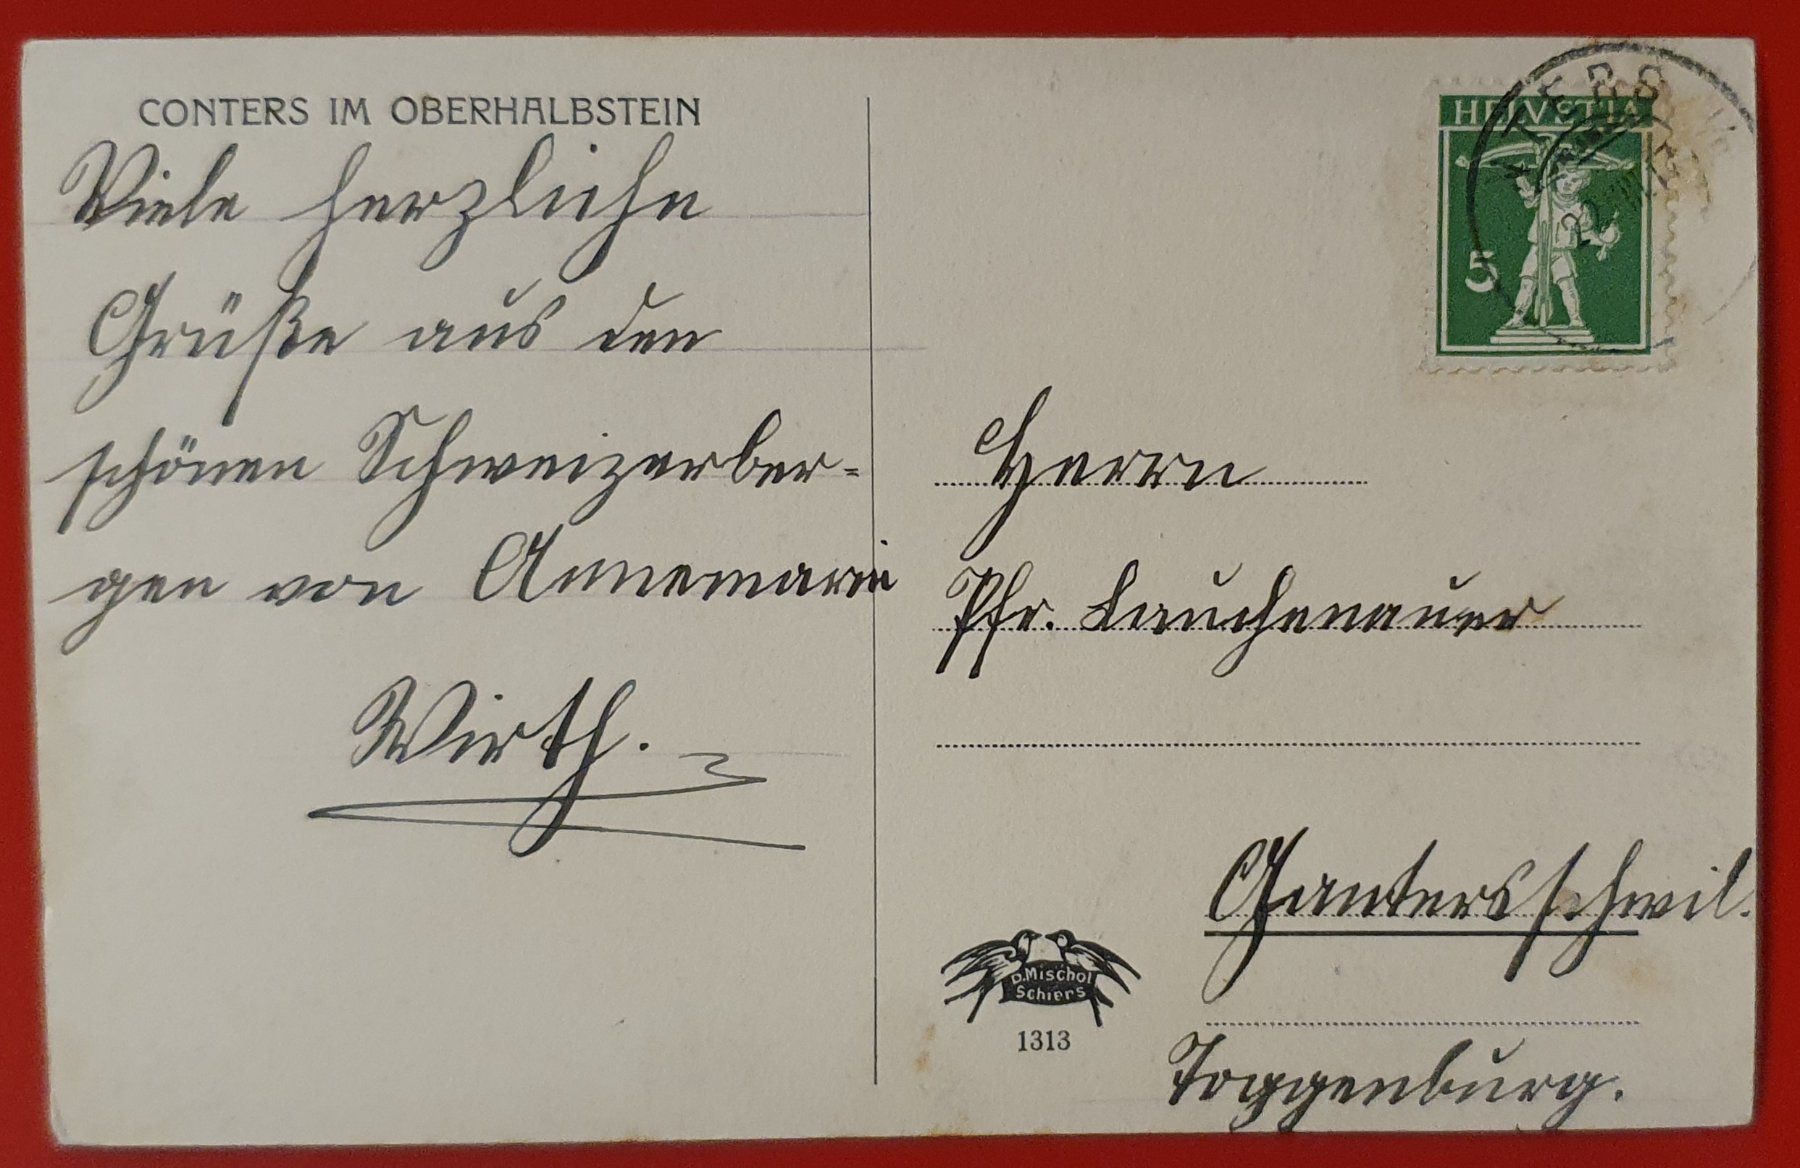 CONTERS IM OBERHALBSTEIN
Viele herzliche
Grüße aus den
schönen Schweizerber=
gen von Annemarie
Wirth.
HELVETIA
5
22
Herrn
Pfr. Lauchenauer
Gantersschwil.
Toggenburg.
D. Mischol
Schiers
1313